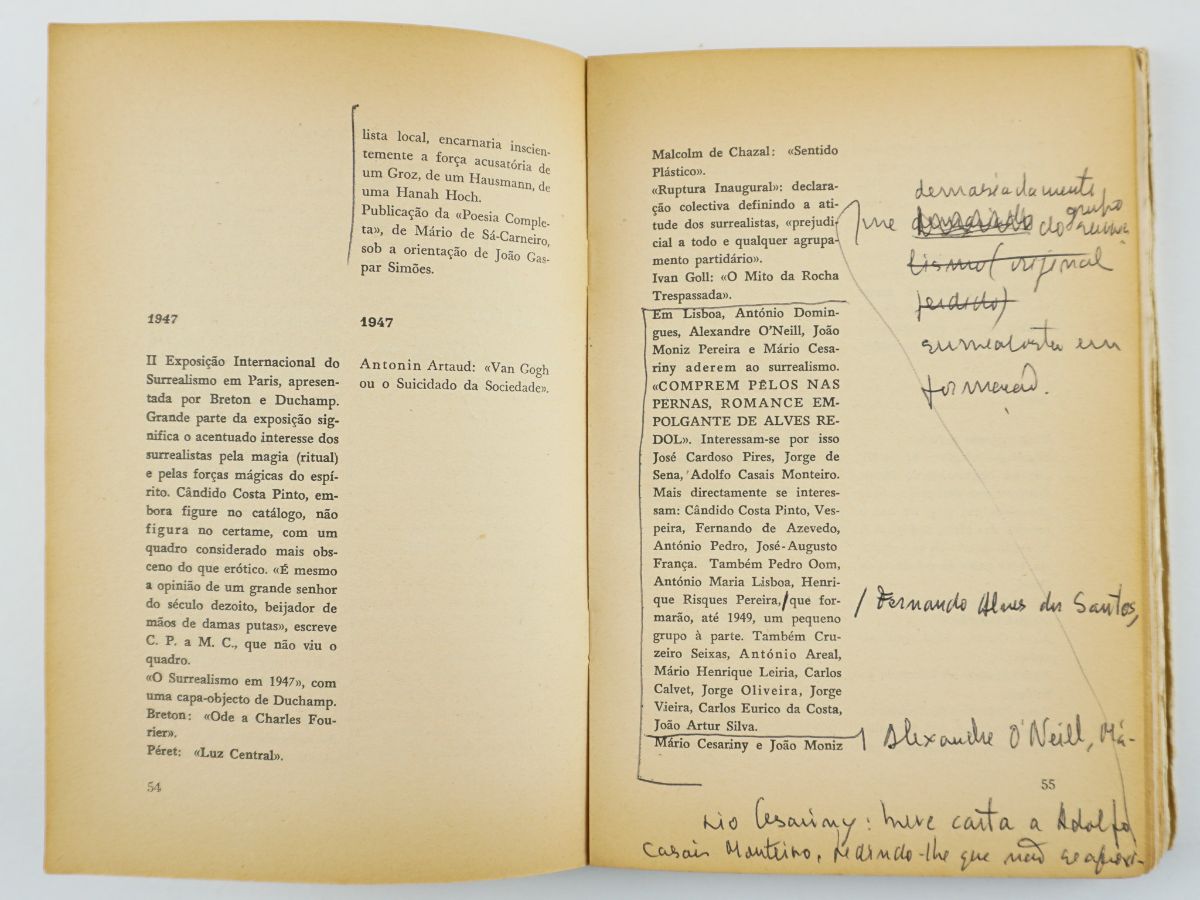 lista local, encarnaria inscien-
temente a força acusatória de
um Groz, de um Hausmann, de
uma Hanah Hoch.
Publicação da «Poesia Comple-
ta», de Mário de Sá-Carneiro,
sob a orientação de João Gas-
par Simões.
1947
II Exposição Internacional do
Surrealismo em Paris, apresen-
tada por Breton e Duchamp.
Grande parte da exposição sig-
nifica o acentuado interesse dos
surrealistas pela magia (ritual)
e pelas forças mágicas do espí-
rito. Cândido Costa Pinto, em-
bora figure no catálogo, não
figura no certame, com um
quadro considerado mais obs-
ceno do que erótico. «É mesmo
a opinião de um grande senhor
do século dezoito, beijador de
mãos de damas putas», escreve
C. P. a M. C., que não viu o
quadro.
«O Surrealismo em 1947», com
uma capa-objecto de Duchamp.
Breton: «Ode a Charles Fou-
rier».
Péret: «Luz Central».
1947
Antonin Artaud: «Van Gogh
ou o Suicidado da Sociedade».
54
Malcolm de Chazal: «Sentido
Plástico».
«Ruptura Inaugural»: declara-
ção colectiva definindo a ati-
tude dos surrealistas, «prejudi-
cial a todo e qualquer agrupa-
mento partidário».
Ivan Goll: «O Mito da Rocha
Trespassada».
Em Lisboa, António Domin-
gues, Alexandre O'Neill, João
Moniz Pereira e Mário Cesa-
riny aderem ao surrealismo.
«COMPREM PÊLOS NAS
PERNAS, ROMANCE EM-
POLGANTE DE ALVES RE-
DOL». Interessam-se por isso
José Cardoso Pires, Jorge de
Sena, Adolfo Casais Monteiro.
Mais directamente se interes-
sam: Cândido Costa Pinto, Ves-
peira, Fernando de Azevedo,
António Pedro, José-Augusto
França. Também Pedro Oom,
António Maria Lisboa, Henri-
que Risques Pereira, que for-
marão, até 1949, um pequeno
grupo à parte. Também Cru-
zeiro Seixas, António Areal,
Mário Henrique Leiria, Carlos
Calvet, Jorge Oliveira, Jorge
Vieira, Carlos Eurico da Costa,
João Artur Silva.
Mário Cesariny e João Moniz
55
demasiadamente
me do grupo
lismo (original
perdido)
surrealista em
formação.
/ Fernando Alves dos Santos,
/ Alexandre O'Neill, Má-
rio Cesariny: breve carta a Adolfo
Casais Monteiro, pedindo-lhe que não se aproxi-